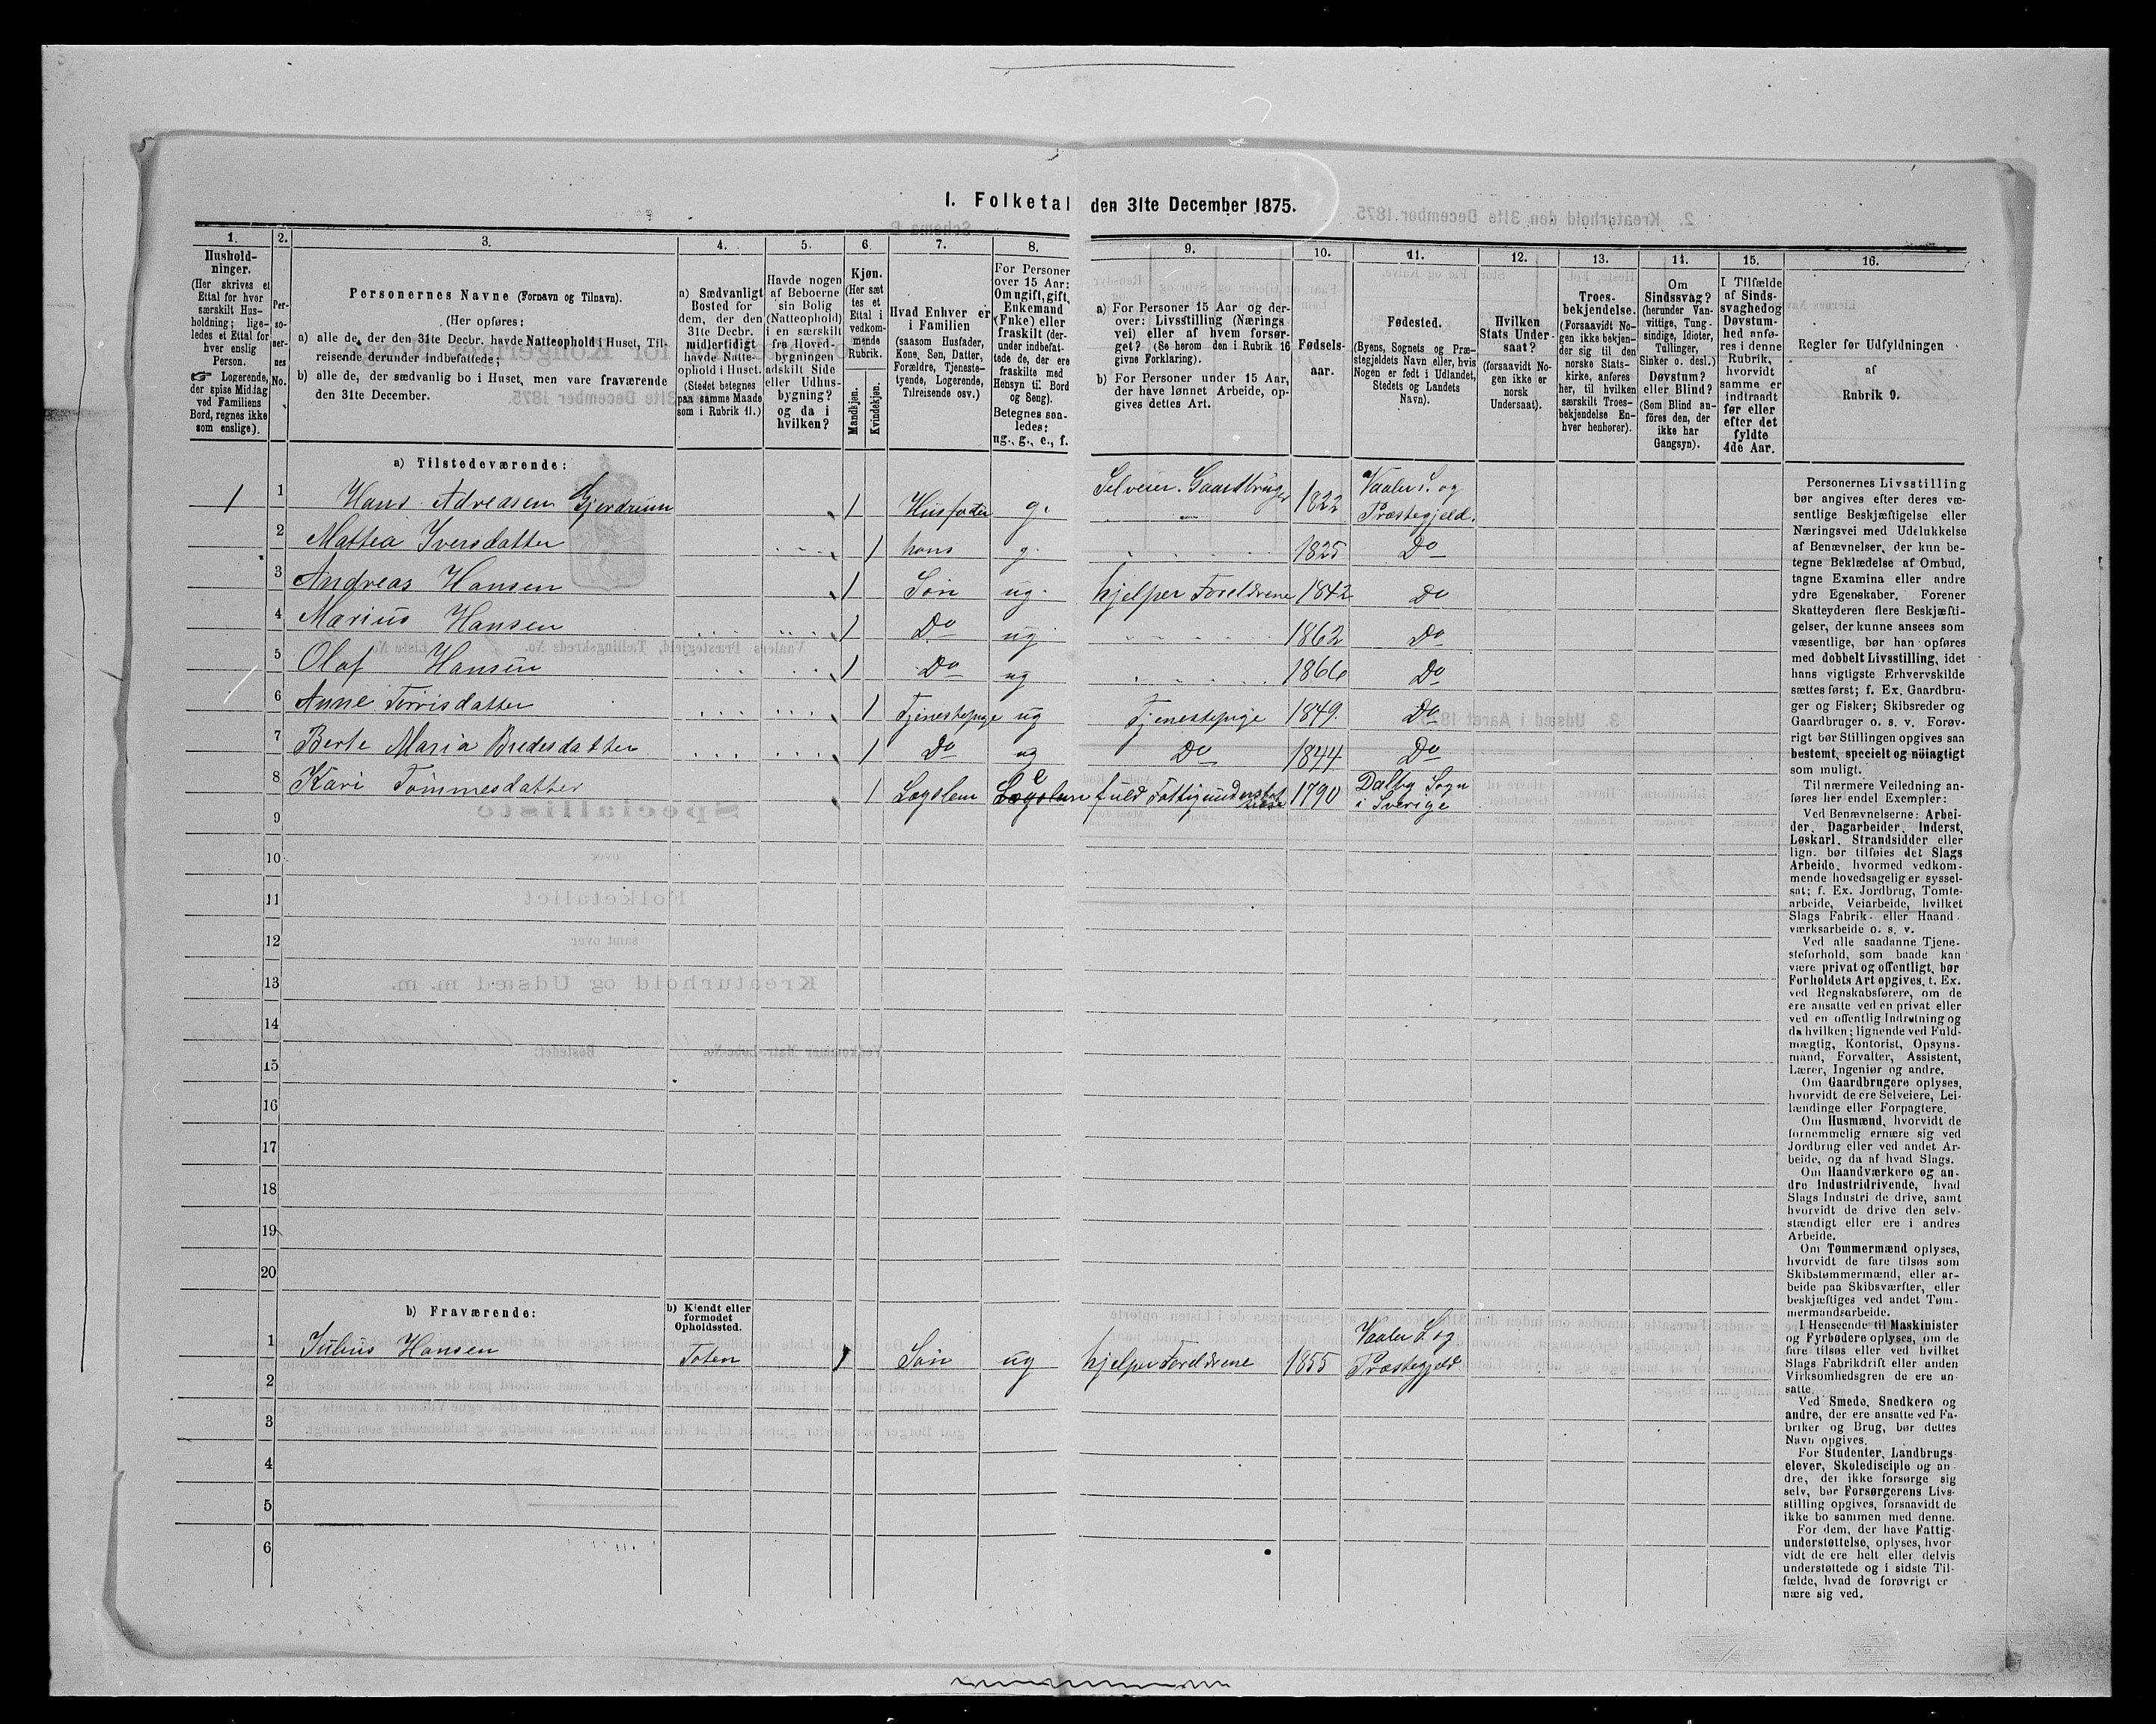 1. Folketal den 31te December 1875.
1.
2.
3.
4.
5.
6.
7.
8.
9.
10.
11.
12.
13.
14.
15.
16.
Hushold-
ninger.
(Her skrives et
Ettal for hver
særskilt Hus-
holdning; lige-
ledes et Ettal for
hver enslig
Person.
☞ Logerende,
der spise Middag
ved Familiens
Bord, regnes ikke
som enslige).
Per-
so-
ner-
nes
No.
Personernes Navne (Fornavn og Tilnavn).
(Her opføres:
a) alle de, der den 31te Decbr. havde Natteophold i Huset, Til-
reisende derunder indbefattede;
b) alle de, der sædvanlig bo i Huset, men vare fraværende
den 31te December.
a) Sædvanligt
Bosted for
dem, der den
31te Decbr.
midlertidigt
havde Natte-
ophold i Huset.
(Stedet betegnes
paa samme Maade
som i Rubrik 11.)
Havde nogen
af Beboerne
sin Bolig
(Natteophold)
i en særskilt
fra Hoved-
bygningen
adskilt Side
eller Udhus-
bygning?
og da i
hvilken?
Kjøn.
(Her sæt
tes et
Ettal i
vedkom-
mende
Rubrik.
Mandkjøn.
Kvindekjøn.
Hvad Enhver er
i Familien
(saasom Husfader,
Kone, Søn, Datter,
Forældre, Tjeneste-
tyende, Logerende,
Tilreisende osv.)
For Personer
over 15 Aar:
Om ugift, gift,
Enkemand
(Enke) eller
fraskilt (der-
under indbefat-
tede de, der ere
fraskilte med
Hensyn til Bord
og Seng).
Betegnes saa-
ledes:
ug., g., e., f.
a) For Personer 15 Aar og der-
over: Livsstilling (Nærings
vei) eller af hvem forsør-
get? (Se herom den i Rubrik 16
givne Forklaring).
b) For Personer under 15 Aar,
der have lønnet Arbeide, op-
gives dettes Art.
Fødsels-
aar.
Fødested.
(Byens, Sognets og Præ-
stegjeldets Navn eller, hvis
Nogen er født i Udlandet,
Stedets og Landets
Navn).
Hvilken
Stats Under-
saat?
(forsaavidt No-
gen ikke er
norsk
Undersaat).
Troes-
bekjendelse.
(Forsaavidt No-
gen ikke bekjen-
der sig til den
norske Stats-
kirke, anføres
her, til hvilken
særskilt Troes-
bekjendelse En-
hver henhører).
Om
Sindssvag?
(herunder Van-
vittige, Tung-
sindige, Idioter,
Tullinger,
Sinker o. desl.)
Døvstum?
eller Blind?
(Som Blind an-
føres den, der
ikke har
Gangsyn).
I Tilfælde
af Sinds-
svaghed og
Døvstum-
hed anfø-
res i denne
Rubrik,
hvorvidt
samme er
indtraadt
før eller
efter det
fyldte
4de Aar.
Regler for Udfyldningen
af
Rubrik 9.
a) Tilstedeværende:
1 1 Hans Adreasen Gjerdrum 1 Husfader g. Selveier. Gaardbruger 1822 Vaaler S. og
Præstegjeld.
2 Mattea Iversdatter 1 hans g. 1825 Do
3 Andreas Hansen 1 Søn ug. hjelper Foreldrene 1842 Do
4 Marius Hansen 1 Do ug 1862 Do
5 Olaf Hansen 1 Do ug 1866 Do
6 Anne Torrisdatter 1 Tjenestepige ug Tjenestepige 1849. Do
7 Berte Maria Bredesdatter 1 Do ug Do 1844 Do
8 Kari Tommesdatter 1 Lægslem e Lægslem fuld Fattigunderstøt 1790 Dalby Sogn
i Sverige
9
10
11
12
13
14
15
16
17
18
19
20
b) Fraværende:
b) Kjendt eller
formodet
Opholdssted.
1 Julius Hansen Toten 1 Søn ug hjelper Foreldrene 1855 Vaaler S. og
Præstegjeld
2
3
4
5
6
Personernes Livsstilling
bør angives efter deres væ-
sentlige Beskjæftigelse eller
Næringsvei med Udelukkelse
af Benævnelser, der kun be-
tegne Beklædelse af Ombud,
tagne Examina eller andre
ydre Egenskaber. Forener
Skatteyderen flere Beskjæfti-
gelser, der kunne ansees som
væsentlige, bør han opføres
med dobbelt Livsstilling, idet
hans vigtigste Erhvervskilde
sættes først; f. Ex. Gaardbru-
ger og Fisker; Skibsreder og
Gaardbruger o. s. v. Forøv-
rigt bør Stillingen opgives saa
bestemt, specielt og nöiagtigt
som muligt.
Til nærmere Veiledning an-
føres her endel Exempler:
Ved Benævnelserne: Arbei-
der, Dagarbeider, Inderst,
Løskarl, Strandsidder eller
lign. bør tilføies det Slags
Arbeide, hvormed vedkom-
mende hovedsagelig er syssel-
sat; f. Ex. Jordbrug, Tomte-
arbeide, Veiarbeide, hvilket
Slags Fabrik- eller Haand-
værksarbeide o. s. v.
Ved alle saadanne Tjene-
steforhold, som baade kan
være privat og offentligt, bør
Forholdets Art opgives, t. Ex.
ved Regnskabsførere, om de
ere ansatte ved en privat eller
ved en offentlig Indretning og
da hvilken; lignende ved Fuld-
mægtig, Kontorist, Opsyns-
mand, Forvalter, Assistent,
Lærer, Ingeniør og andre.
Om Gaardbrugere oplyses,
hvorvidt de ere Selveiere, Lei-
lændinge eller Forpagtere.
Om Husmænd, hvorvidt de
fornemmelig ernære sig ved
Jordbrug eller ved andet Ar-
beide, og da af hvad Slags.
Om Haandværkere og an-
dre Industridrivende, hvad
Slags Industri de drive, samt
hvorvidt de drive den selv-
stændigt eller ere i andres
Arbeide.
Om Tømmermænd oplyses,
hvorvidt de fare tilsøs som
Skibstømmermænd, eller ar-
beide paa Skibsværfter, eller
beskjæftiges ved andet Tøm-
mermandsarbeide.
I Henseende til Maskinister
og Fyrbødere oplyses, om de
fare tilsøs eller ved hvilket
Slags Fabrikdrift eller anden
Virksomhedsgren de ere an-
satte.
Ved Smede, Snedkere og
andre, der ere ansatte ved Fa-
briker og Brug, bør dettes
Navn opgives.
For Studenter, Landbrugs-
elever, Skoledisciple og an-
dre, der ikke forsørge sig
selv, bør Forsørgerens Livs-
stilling opgives, forsaavidt de
ikke bo sammen med denne.
For dem, der have Fattig-
understøttelse, oplyses, hvor
vidt de ere helt eller delvis
understøttede og i sidste Til-
fælde, hvad de forøvrigt er
nære sig ved.